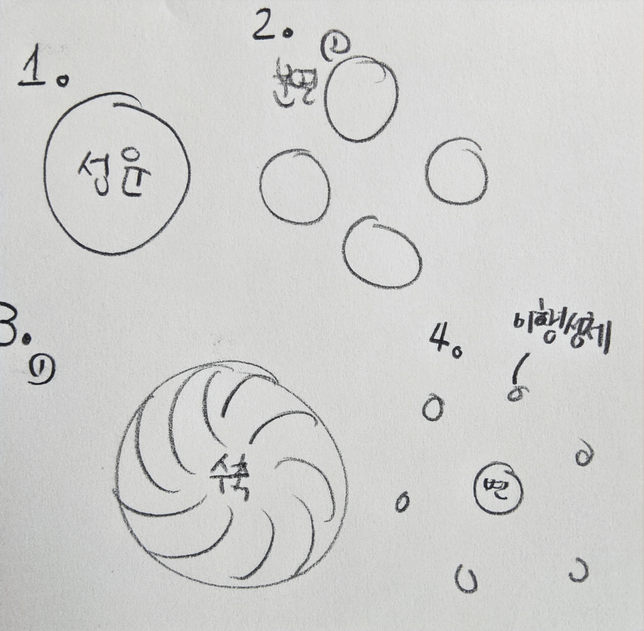 1.
성운
2. ①
분열
3.
①
수축
4.
이행성체